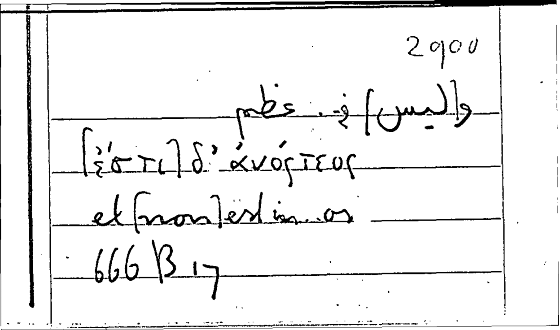 2900
و[ليس] في .. عظم
[ἔστι] δ' ἀνόστεος
et [non] est in .. os
666 B 17